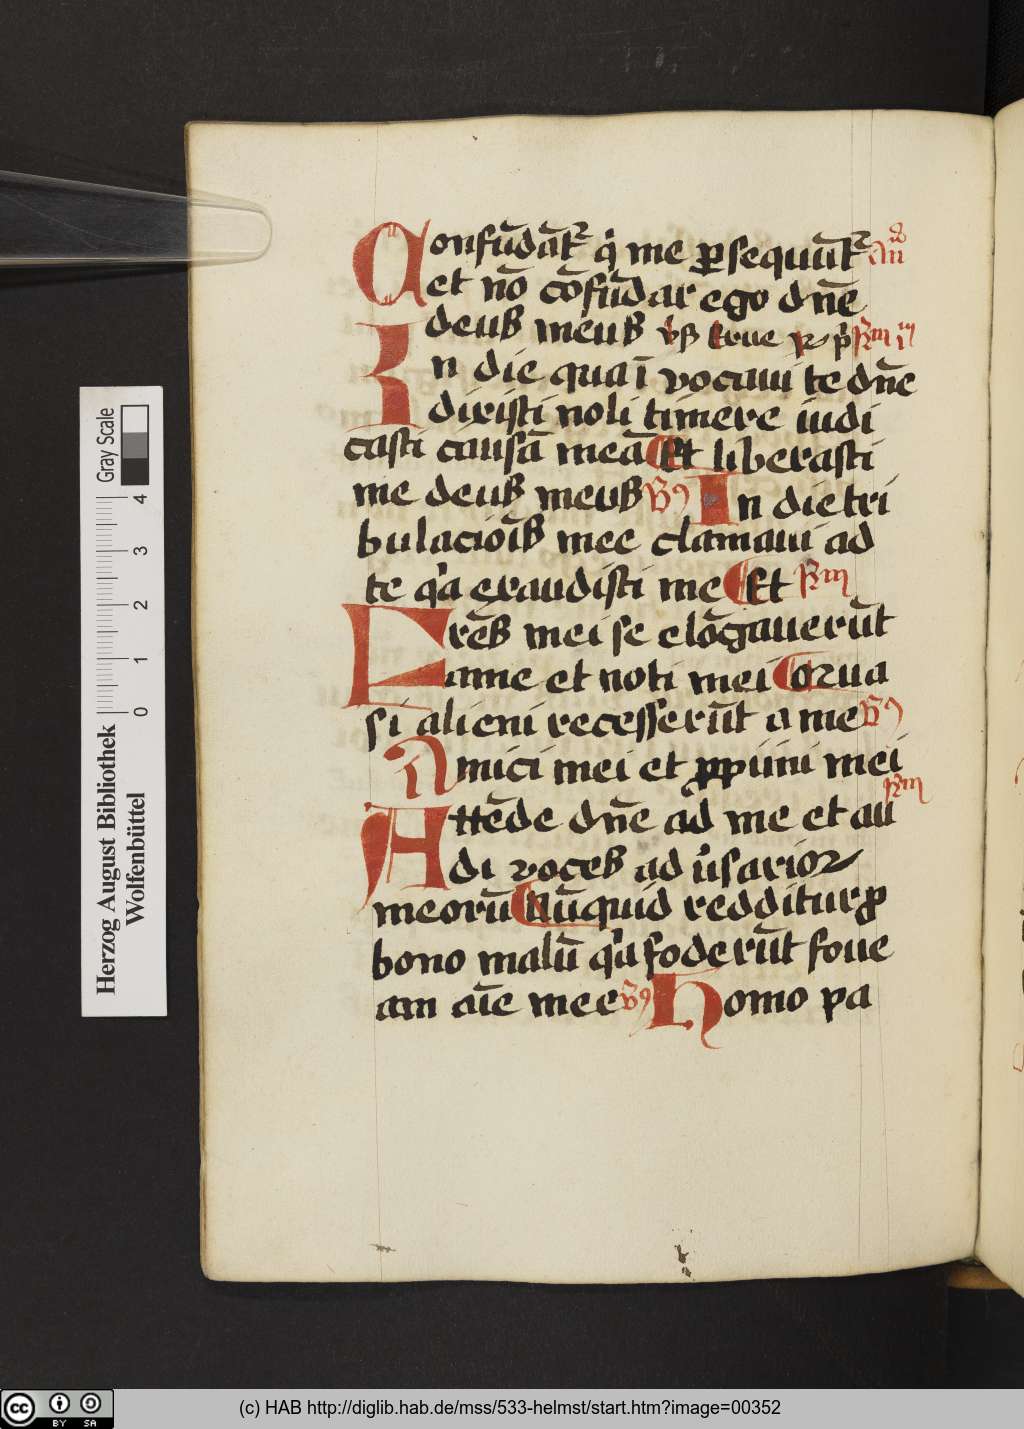 Confūdāt᷑ qͥ me ꝑsequūt᷑ an̄
et nō cōfūdar ego dn̄e
deus meus v̓ß Erue Rm̄
In die qua ī vocaui te dn̄e
dixisti noli timere iudi
casti causā meā Et liberasti
me deus meus ℣9 In die tri
bulaciōīs mee clamaui ad
te qͥa exaudisti me Et Rm̄
Frēs mei se elōgauerūt
a me et noti mei Corua
si alieni recesserūt a me ℣9
Amici mei et ꝓpiīni mei
Rm̄
Attēde dn̄e ad me et au
di voces ad ūsarioꝝ
meorū Nūquid redditur ꝓ
bono malū qͥa foderūt foue
am aīe mee ℣9 Homo pa
Herzog August Bibliothek
Wolfenbüttel
0 1 2 3 4
Gray Scale
cc BY SA
(c) HAB http://diglib.hab.de/mss/533-helmst/start.htm?image=00352